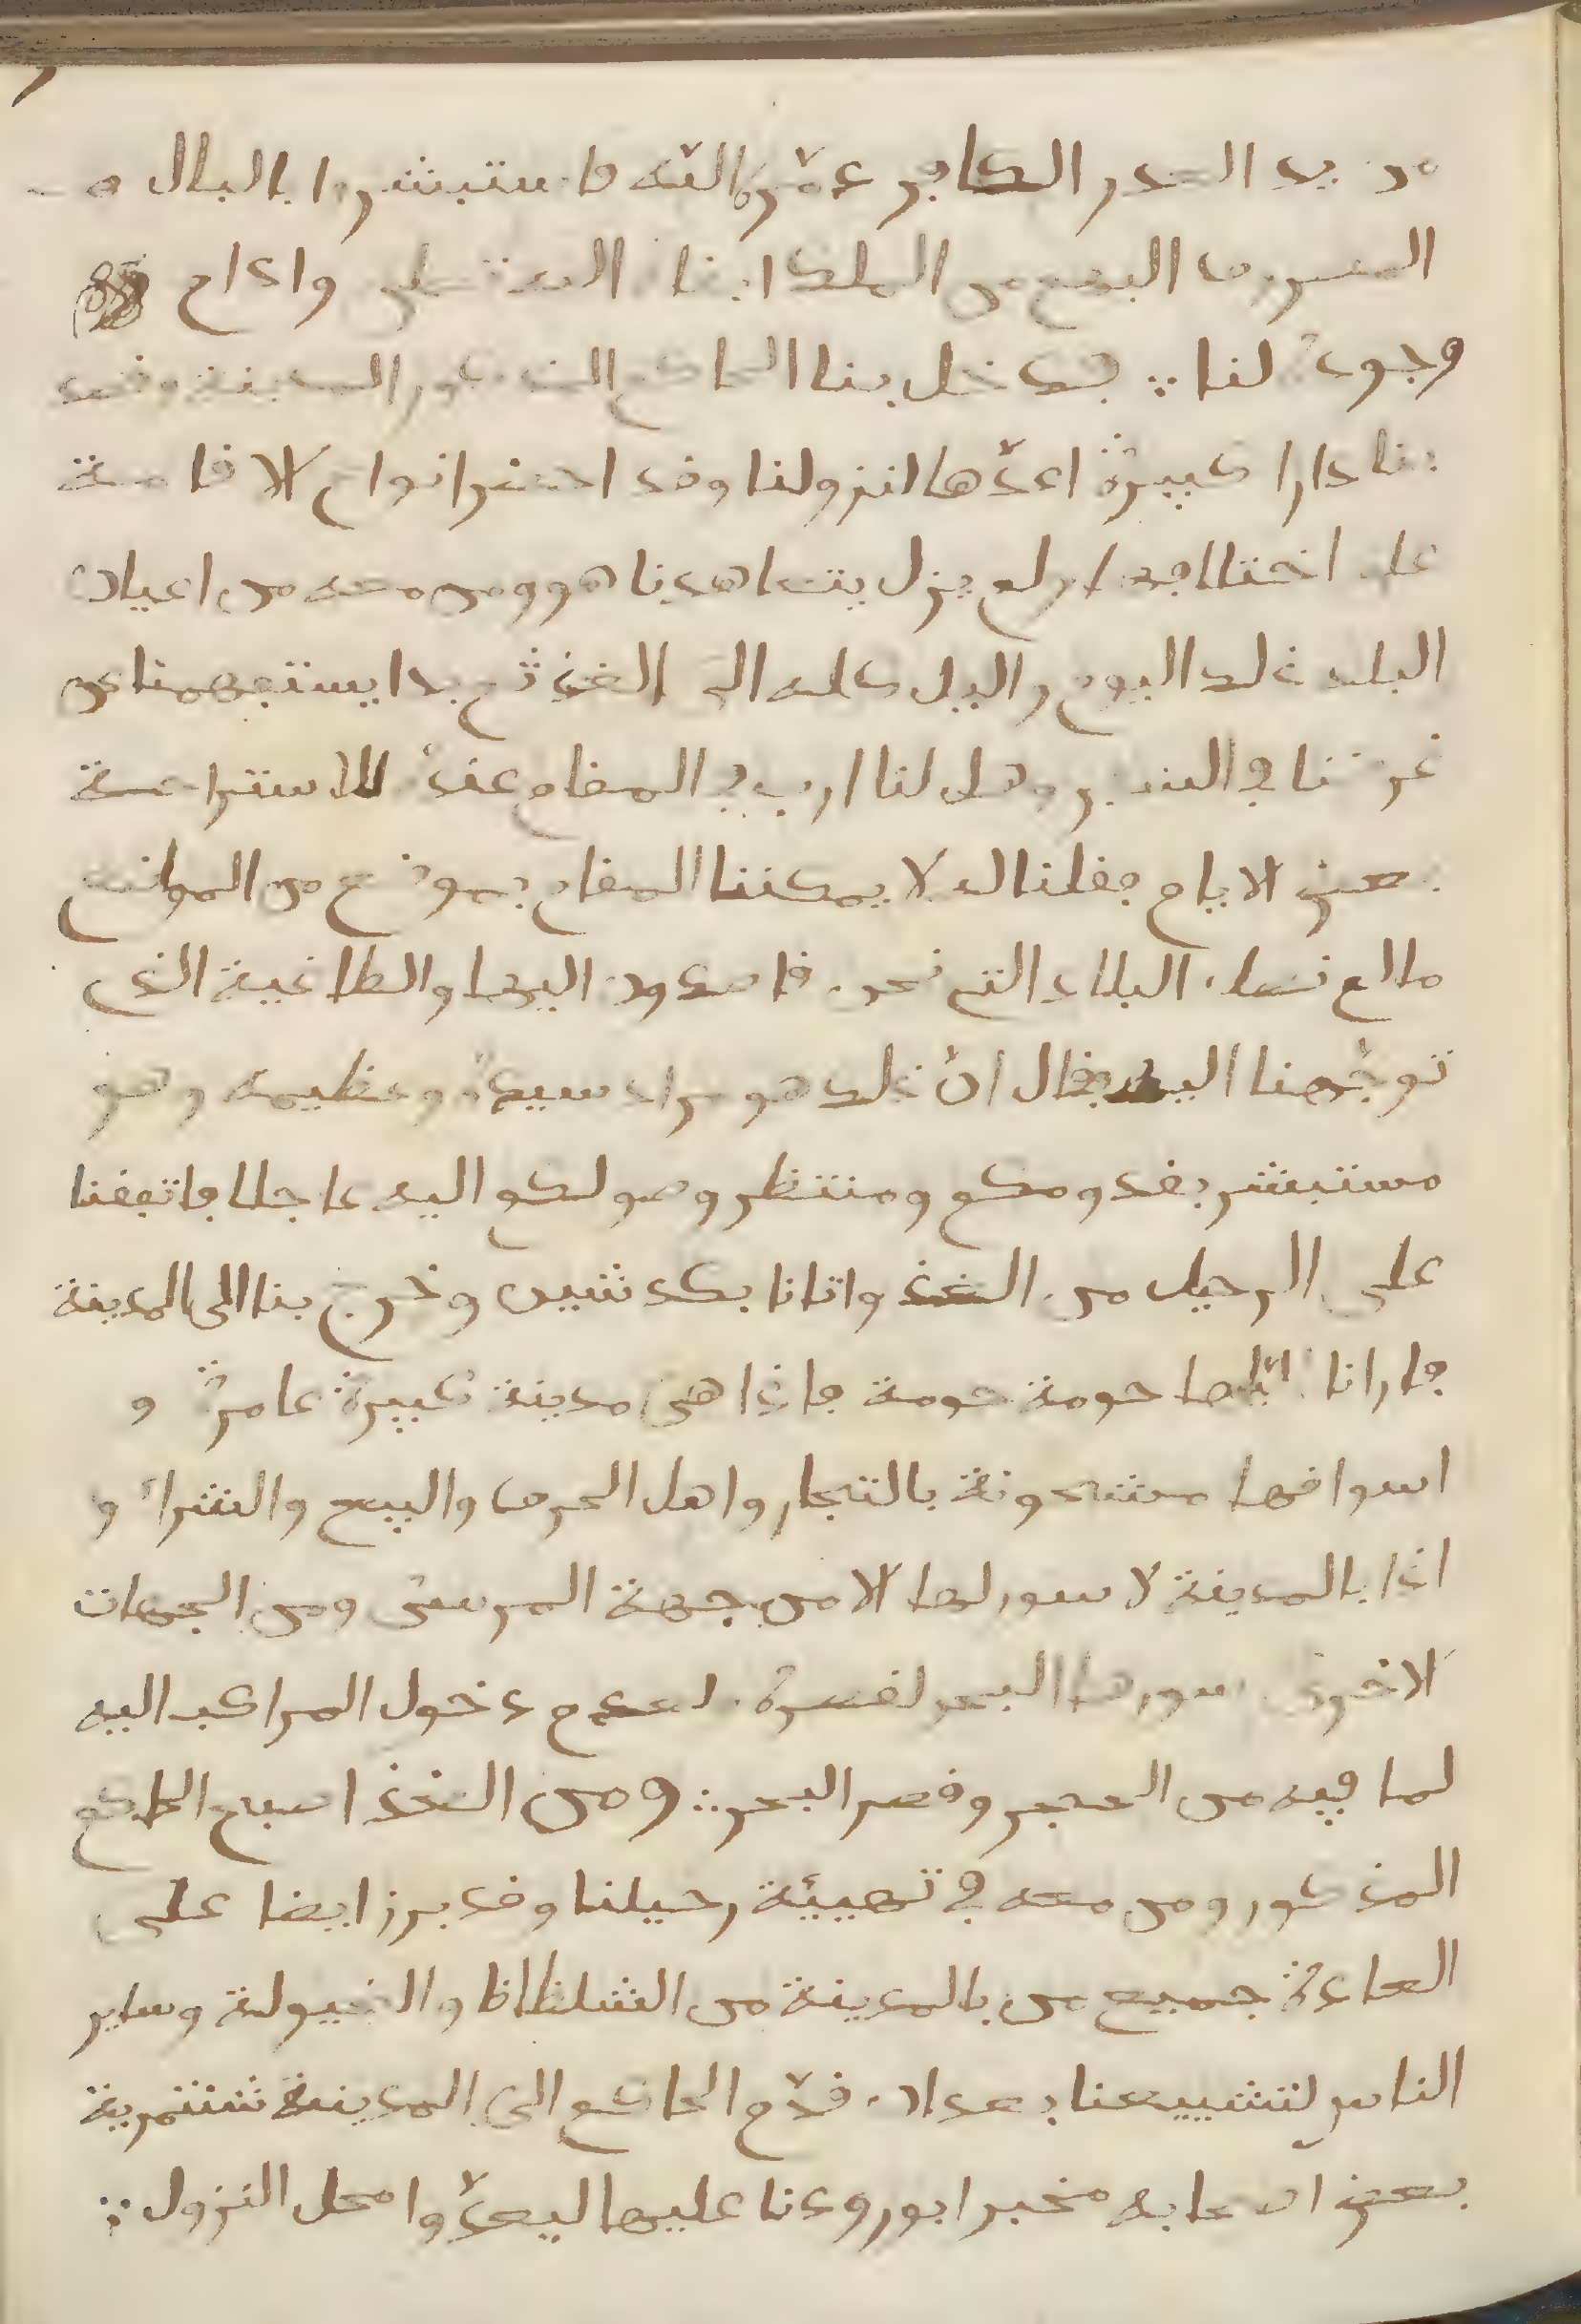 من يد العدو الكافر دمّره الله فاستبشروا بالبال
السرور بما اليهم من الملك ايضا الله تعلى وادام
وجوده لنا ∴ فدخل بنا الحاكم المذكور المدينة وقصد
بنا دارا كبيرة اعدّها لنزولنا وقد احضر انواع الاقامة
على اختلافها ولم يزل يتعاهدنا هو ومن معه من اعيان
البلد ذلك اليوم واليل كله الى الغد ثم بدا يستفهمنا عن
غرضنا في السير وهل لنا ارب في المقام عنده للاستراحة
بعض الايام فقلنا له لا يمكننا المقام بموضع من المواضع
ما لم نصل البلاد التي نحن قاصدون اليها والطاغية الذي
توجّهنا اليه فقال انّ ذلك هو مراد سيده وعظيمه وهو
مستبشر بقدومكم ومنتظر وصولكم اليه عاجلا فاتفقنا
على الرحيل من الغد واتانا بكدشين وخرج بنا الى المدينة
فارانا ايّاها حومة حومة فاذا هي مدينة كبيرة عامرة و
اسواقها مشحونة بالتجار واهل الحرف والبيع والشراء و
اذا بالمدينة لا سور لها الا من جهة المرسى ومن الجهات
الاخرى سورها البحر لقصره لعدم دخول المراكب اليه
لما فيه من الحجر وقصر البحر ∴ ومن الغد اصبح الحاكم
المذكور ومن معه في تهييئة رحيلنا وقد برز ايضا على
العادة جميع من بالمدينة من الشلظاظ والخيولة وساير
الناس لتشييعنا بعد ان قدّم الحاكم الى المدينة شنتمرية
بعض اصحابه مخبرا بورودنا عليها ليعدّوا محل النزول ∴